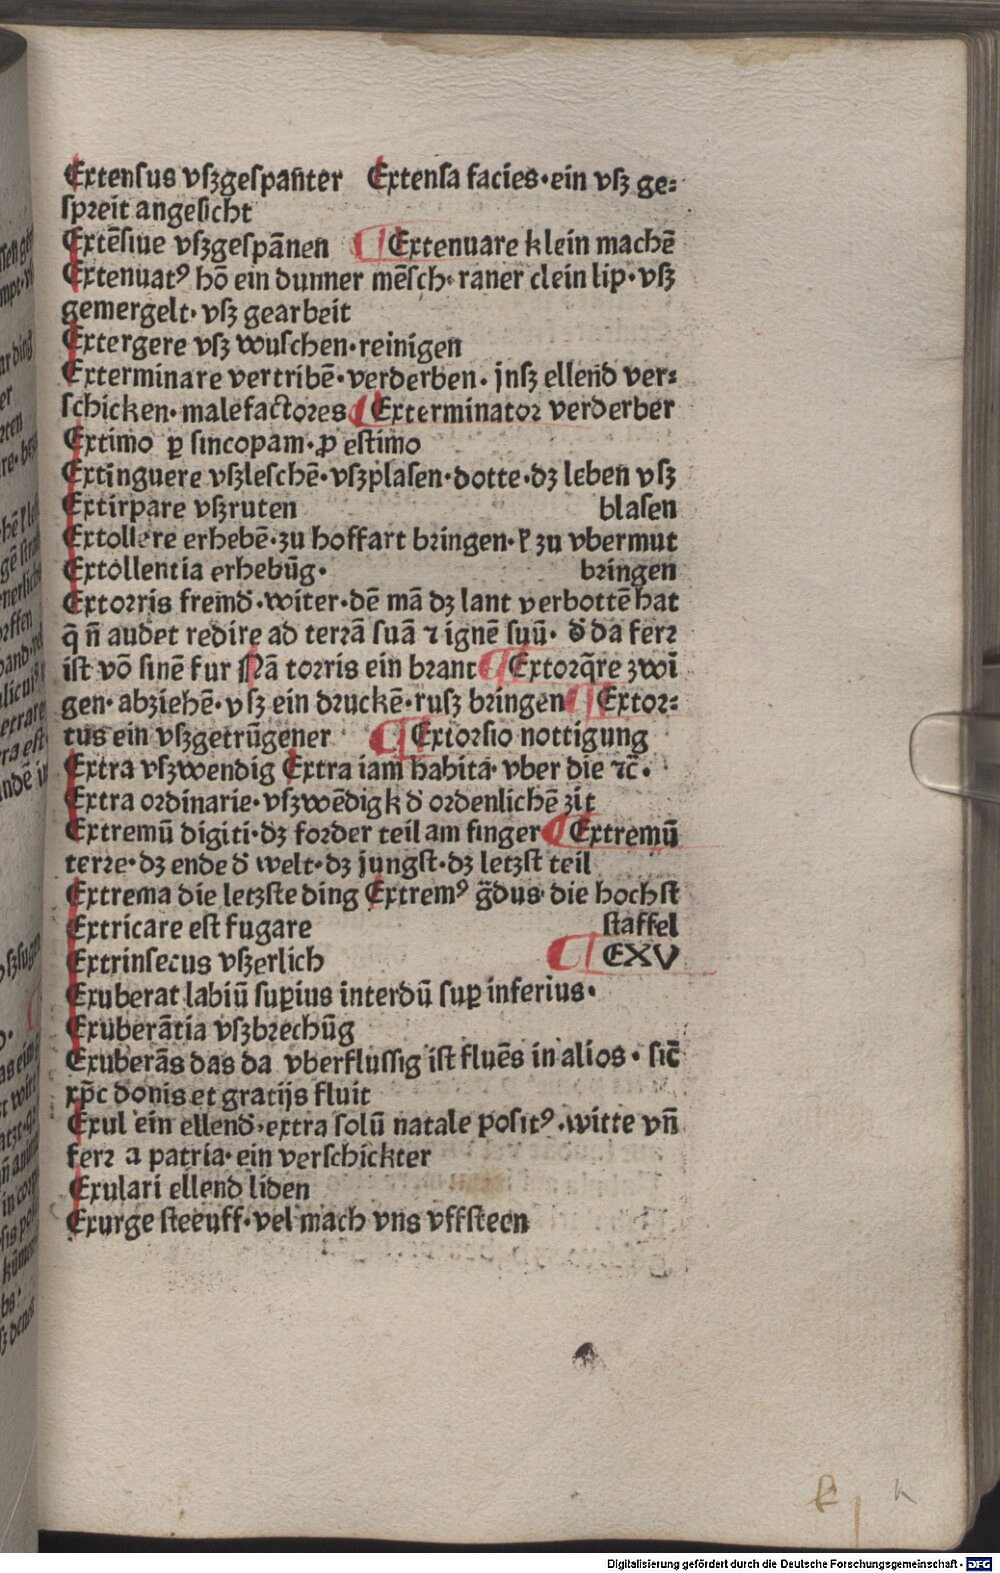 Extensus vſzgeſpañter Extenſa facies·ein vſz ge⸗
ſpreit angeſicht
Extēſiue vſzgeſpānen ¶ Extenuare klein machē
Extenuatꝰ hō ein dunner mēſch·raner clein lip·vſz
gemergelt·vſz gearbeit
Extergere vſz wuſchen·reinigen
Exterminare vertribē·verderben·jnſz ellend ver⸗
ſchicken·malefactores ¶ Exterminator verderber
Extimo ꝑ ſincopam·ꝓ eſtimo
Extinguere vſzleſchē·vſzplaſen·dotte·dz leben vſz
Extirpare vſzruten blaſen
Extollere erhebē·zu hoffart bringen·ꝉ zu vbermut
Extollentia erhebūg· bringen
Extorris fremd·witer·dē mā dz lant verbottē hat
q̄ n̄ audet redire ad terrā ſuā ⁊ ignē ſuū· d̄ da ferꝛ
iſt vō ſinē fur Nā torris ein brant ¶ Extorq̄re zwi
gen·abziehē·vſz ein druckē·ruſz bringen ¶ Extor⸗
tus ein vſzgetrūgener ¶ Extorſio nottigung
Extra vſzwendig Extra iam habita·vber die ⁊c̄·
Extra ordinarie·vſzwēdigk d̄ ordenlichē zit
Extremū digiti·dz forder teil am finger ¶ Extremū
terre·dz ende d̄ welt·dz jungſt·dz letzſt teil
Extrema die letzſte ding Extremꝰ g̃dus·die hochſt
Extricare eſt fugare ſtaffel
Extrinſecus vſzerlich ¶ EXV
Exuberat labiū ſuꝑius interdū ſuꝑ inferius·
Exuberātia vſzbrechūg
Exuberās das da vberfluſſig iſt fluēs in alios·ſic̄
xp̄c donis et gratijs fluit
Exul ein ellend·extra ſolū natale poſitꝰ·witte vn̄
ferꝛ a patria·ein verſchickter
Exulari ellend liden
Exurge ſteeuff·vel mach vns vffſteen
k
Digitalisierung gefördert durch die Deutsche Forschungsgemeinschaft - DFG